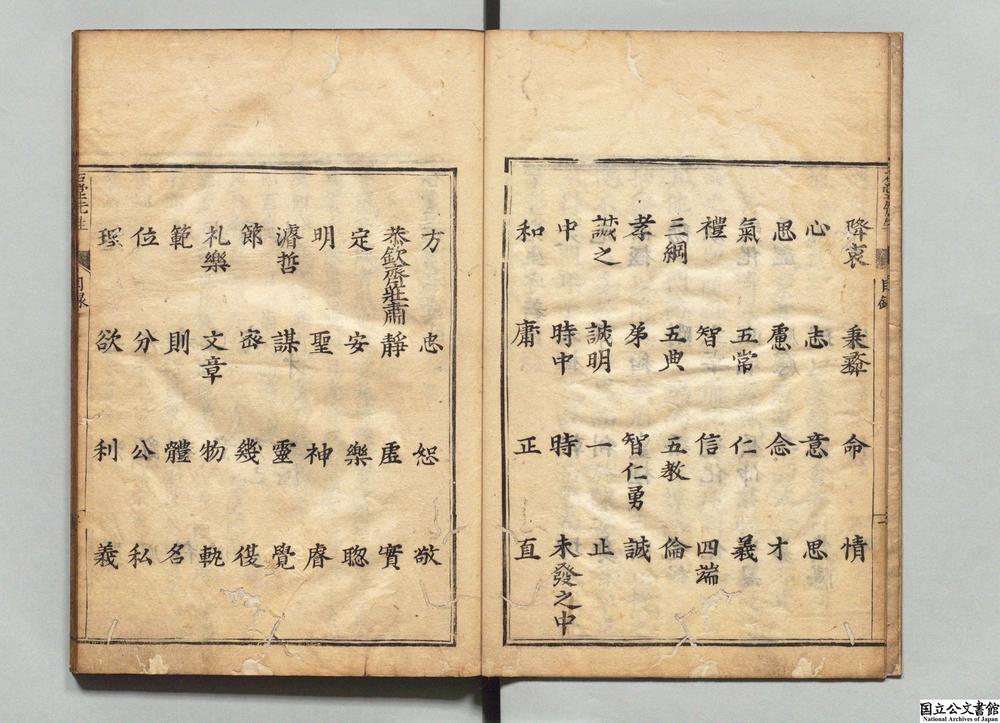 降衷 秉彛 命 情
心 志 意 思
思 慮 念 才
氣 五常 仁 義
禮 智 信 四端
三綱 五典 五教 倫
孝 弟 智仁勇 誠
誠之 誠明 一 止
中 時中 時 未發之中
和 庸 正 直
方 忠 恕 敬
恭欽齊莊肅 靜 虛 實
定 安 樂 聰
明 聖 神 睿
濬哲 謀 靈 覺
節 密 幾 復
礼樂 文章 物 軌
範 則 體 名
位 分 公 私
理 欲 利 義
目錄
目録
国立公文書館
National Archives of Japan